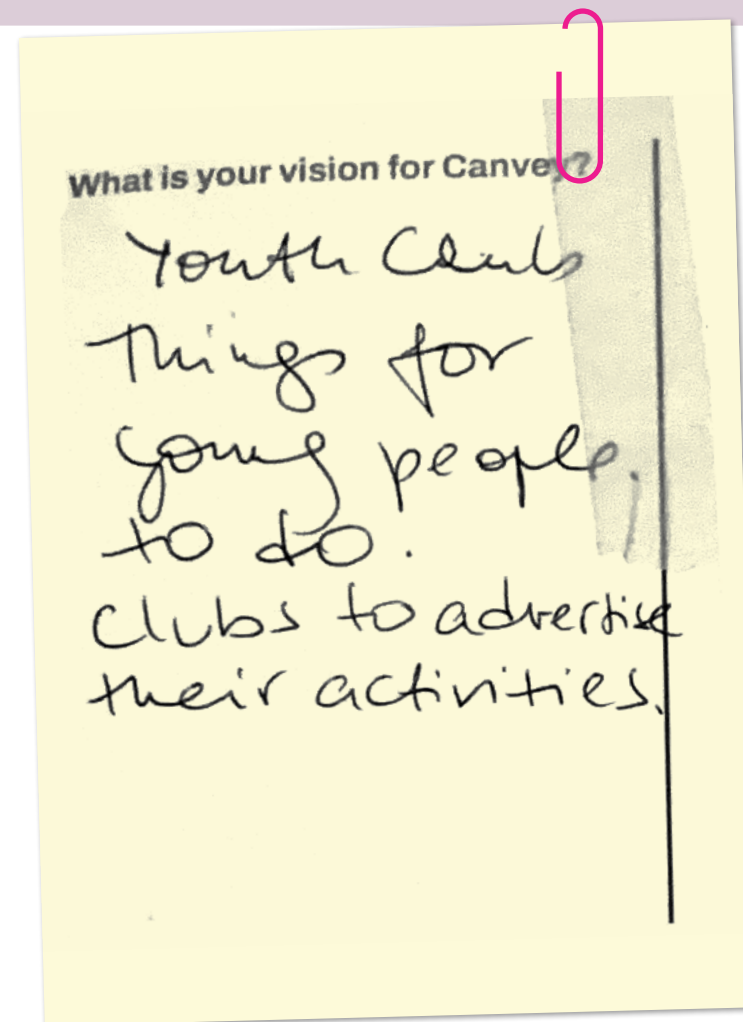 What is your vision for Canvey?
Youth Club
Things for
young people,
to do.
Clubs to advertise
their activities.